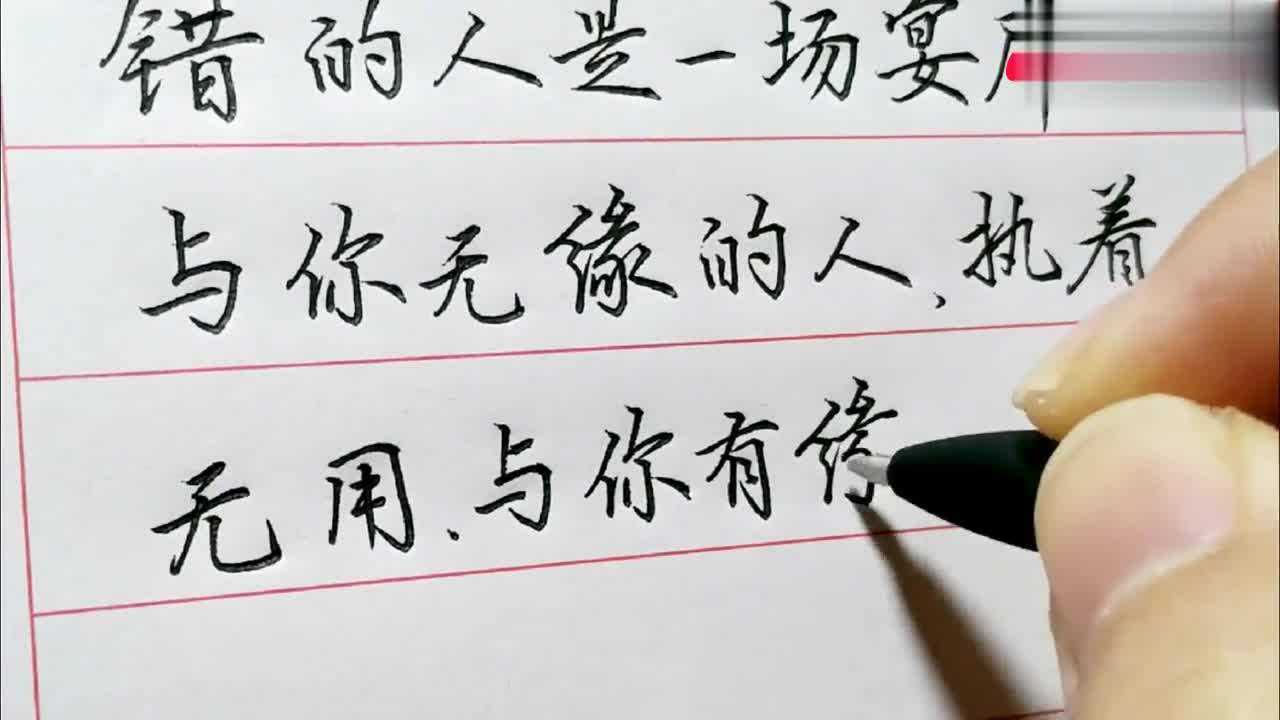 错的人是一场宴
与你无缘的人,执着
无用、与你有缘